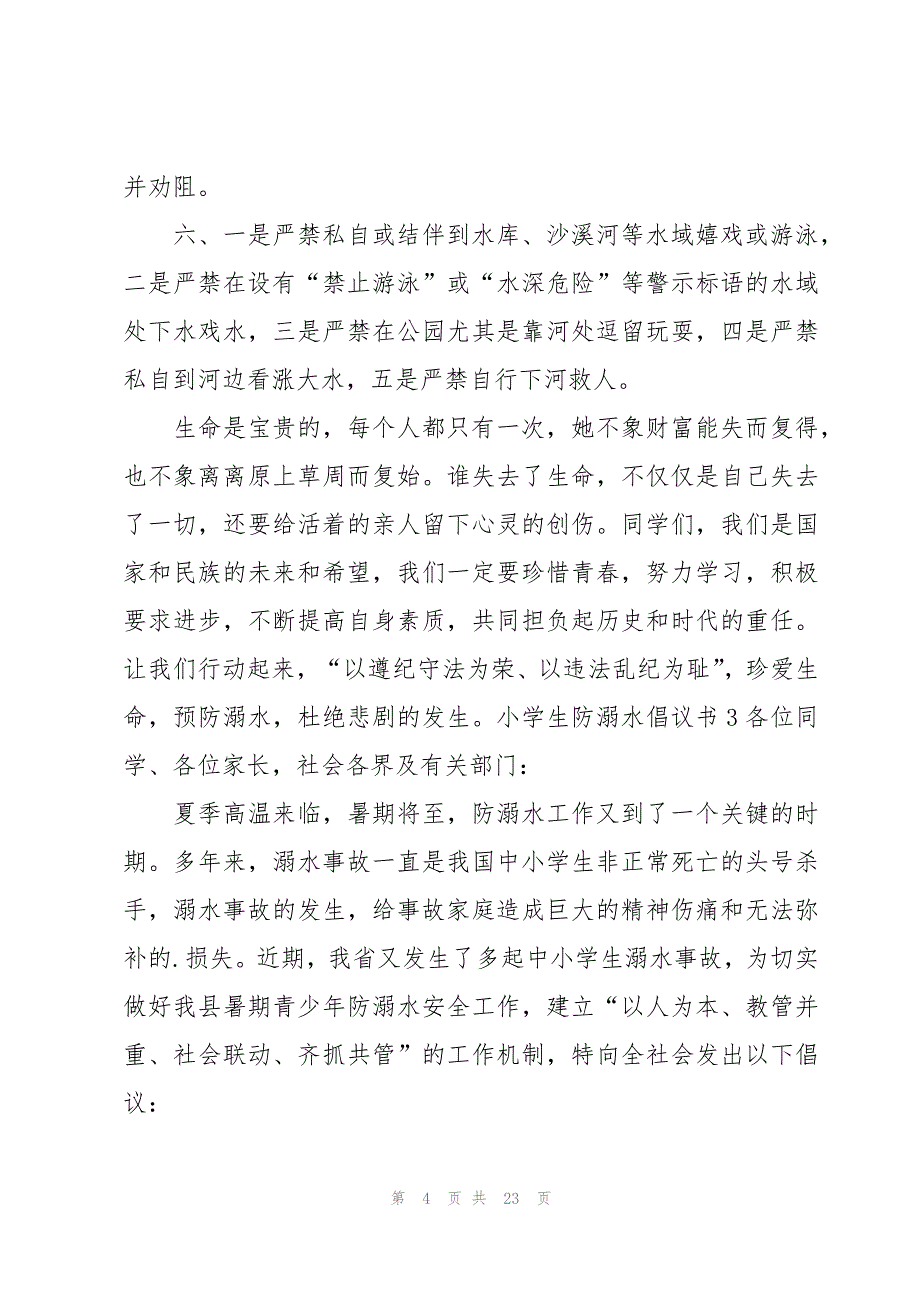 并劝阻。
六、一是严禁私自或结伴到水库、沙溪河等水域嬉戏或游泳，
二是严禁在设有“禁止游泳”或“水深危险”等警示标语的水域
处下水戏水，三是严禁在公园尤其是靠河处逗留玩耍，四是严禁
私自到河边看涨大水，五是严禁自行下河救人。
生命是宝贵的，每个人都只有一次，她不象财富能失而复得，
也不象离离原上草周而复始。谁失去了生命，不仅仅是自己失去
了一切，还要给活着的亲人留下心灵的创伤。同学们，我们是国
家和民族的未来和希望，我们一定要珍惜青春，努力学习，积极
要求进步，不断提高自身素质，共同担负起历史和时代的重任。
让我们行动起来，“以遵纪守法为荣、以违法乱纪为耻”，珍爱生
命，预防溺水，杜绝悲剧的发生。小学生防溺水倡议书 3 各位同
学、各位家长，社会各界及有关部门：
夏季高温来临，暑期将至，防溺水工作又到了一个关键的时
期。多年来，溺水事故一直是我国中小学生非正常死亡的头号杀
手，溺水事故的发生，给事故家庭造成巨大的精神伤痛和无法弥
补的.损失。近期，我省又发生了多起中小学生溺水事故，为切实
做好我县暑期青少年防溺水安全工作，建立“以人为本、教管并
重、社会联动、齐抓共管”的工作机制，特向全社会发出以下倡
议：
第 4 页 共 23 页